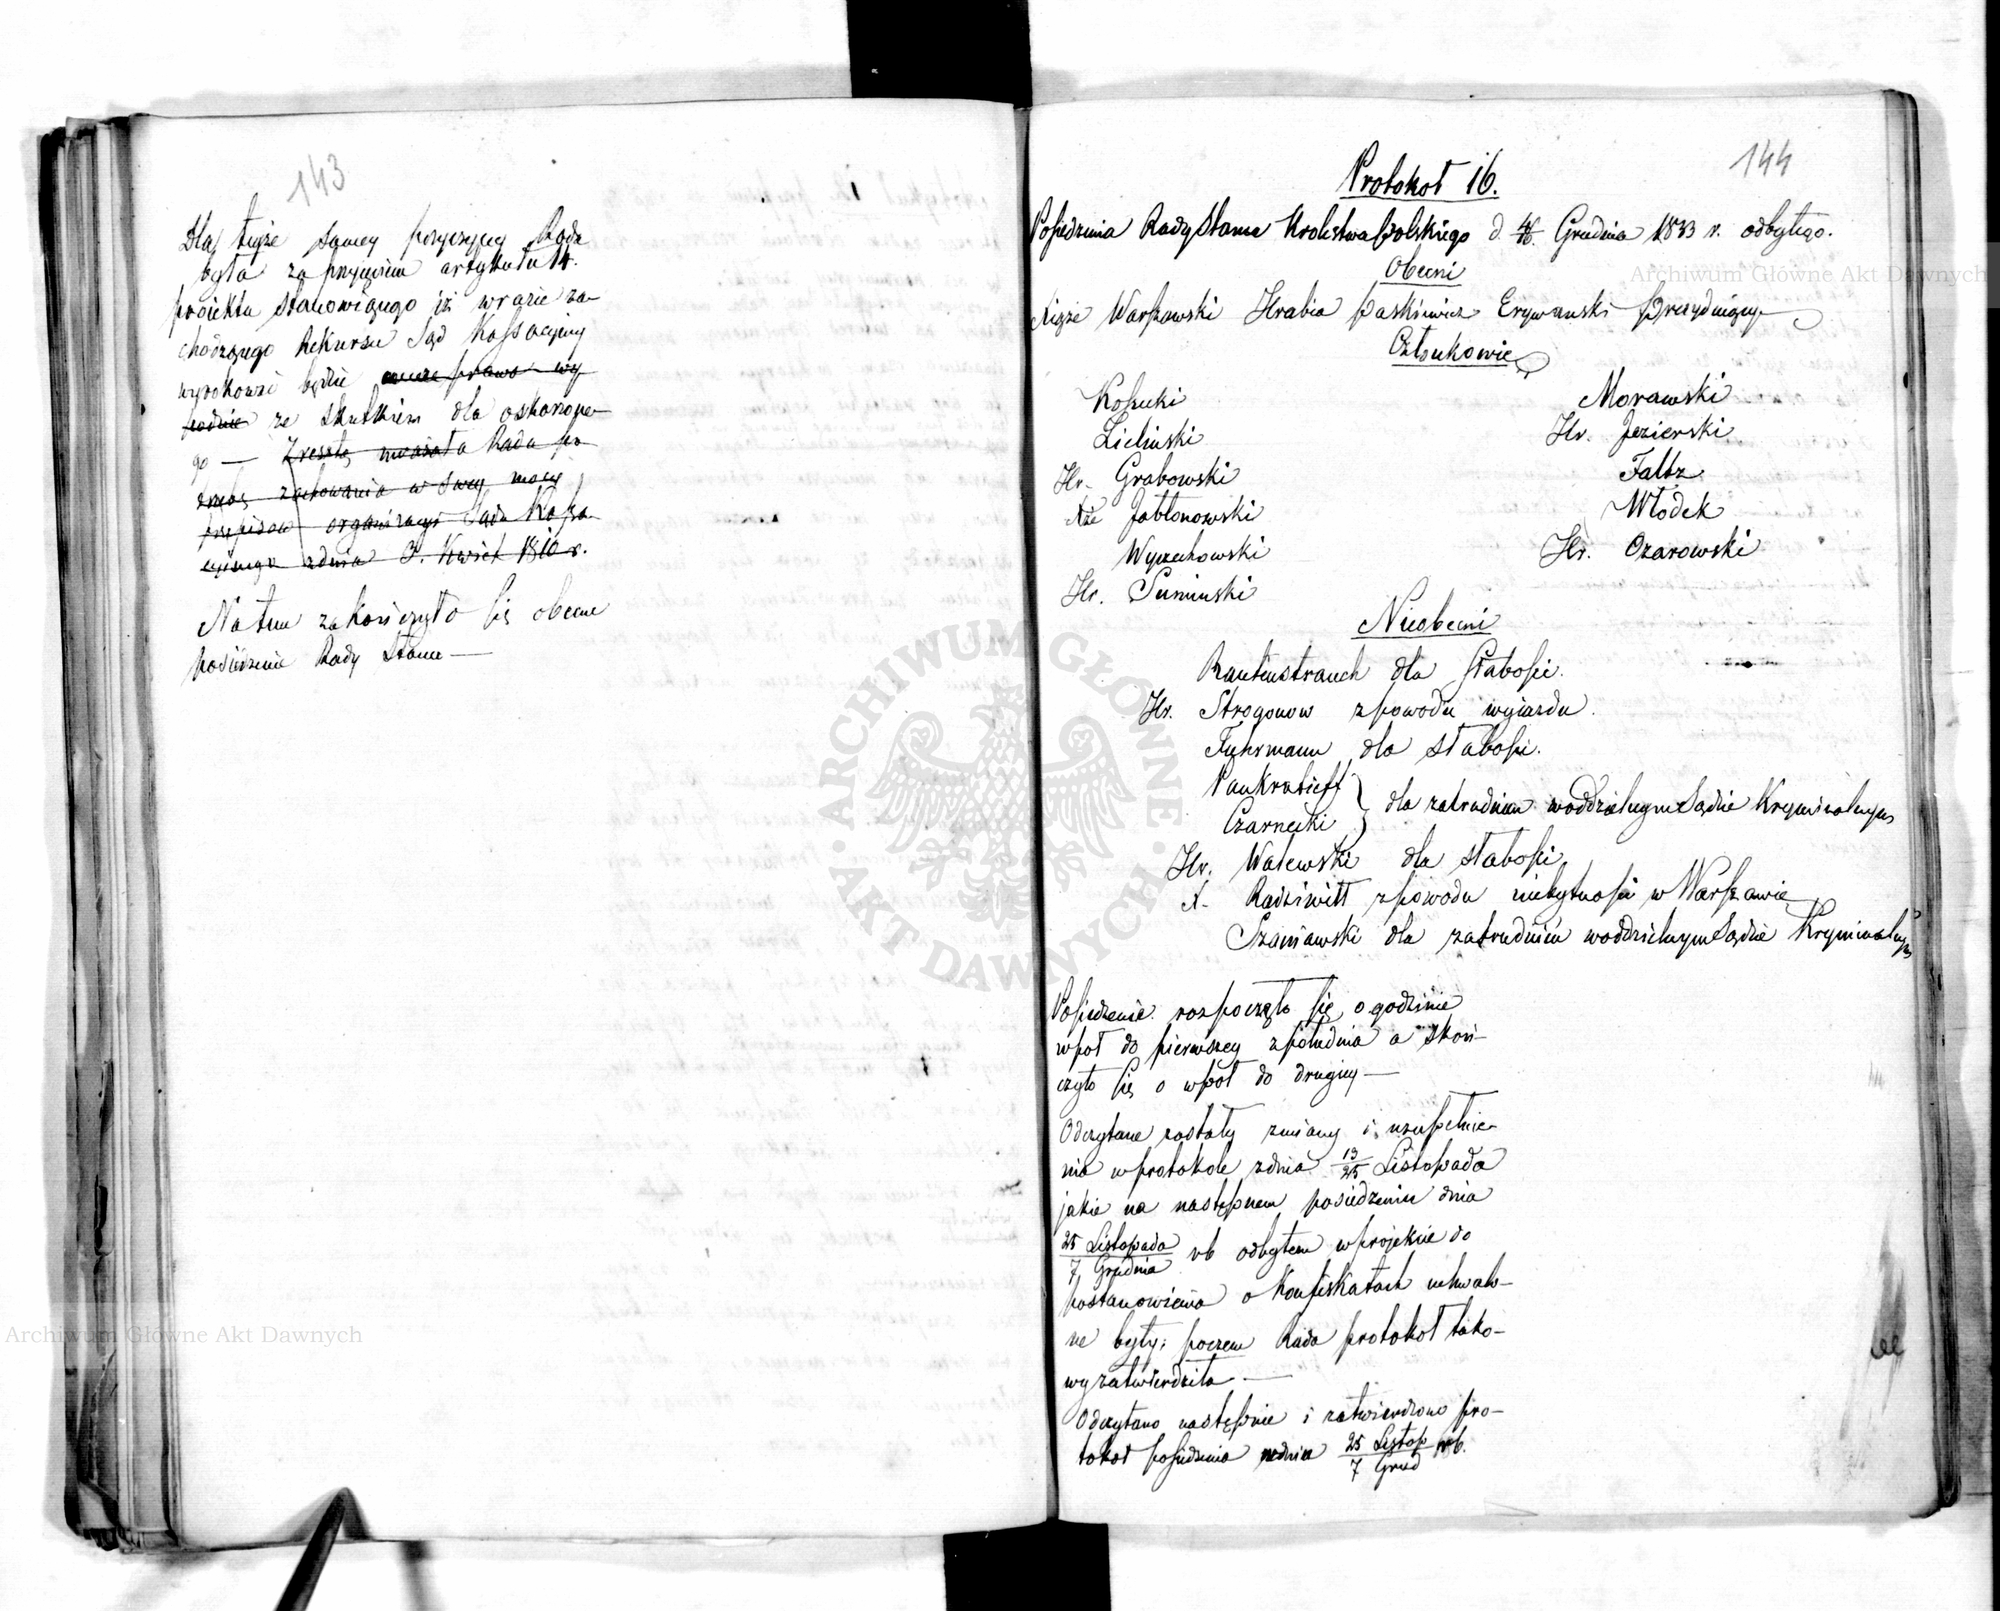 143
Dla teyże samey przyczyny Rada
była za przyjęciem artykułu 14.
proiektu stanowiącego iż w razie za-
chodzącego Rekursu Sąd Kassacyiny
wyrokować będzie prawo wy
ze skutkiem dla oskarżone-
go — Zresztą uważała Rada po-
trzebę zachowania w swey mocy
przepisów organizacyi Sądu Kassa-
cyinego z dnia 3. Kwiet 1810 r.
Na tem zakończyło się obecne
posiedzenie Rady Stanu —
144
Protokół 16.
Posiedzenia Rady Stanu Królestwa Polskiego d. Grudnia 1833 r. odbytego.
Obecni
Xiąże Warszawski Hrabia Paskiewicz Erywański Prezyduiący
Członkowie
Kossecki
Morawski
Zieliński
Hr. Jezierski
Hr. Grabowski
Faltz
Xże Jabłonowski
Włodek
Wyczechowski
Hr. Ożarowski
Hr. Sumiński
Nieobecni
Rautenstrauch dla słabości.
Hr. Strogonow z powodu wyiazdu.
Fuhrmann dla słabości.
Pankratieff
Czarnecki } dla zatrudnień w oddzielnym Sądzie Kryminalnym
Hr. Walewski dla słabości
X. Radziwiłł z powodu niebytności w Warszawie
Szaniawski dla zatrudnień w oddzielnym Sądzie Kryminalnym
Posiedzenie rozpoczęło się o godzinie
wpół do pierwszey z południa a skoń-
czyło się o wpół do drugiey —
Odczytane zostały zmiany i uzupełnie-
nia w protokole z dnia 13/25 Listopada
jakie na następnem posiedzeniu dnia
25 Listopada/7 Grudnia rb odbytem w projekcie do
postanowienia o Konfiskatach uchwalo-
ne były; poczem Rada protokół tako-
wy zatwierdziła —
Odczytano następnie i zatwierdzono pro-
tokół posiedzenia z dnia 25 Listop/7 Grud rb.
ARCHIWUM GŁÓWNE
AKT DAWNYCH
Archiwum Główne Akt Dawnych
Archiwum Główne Akt Dawnych